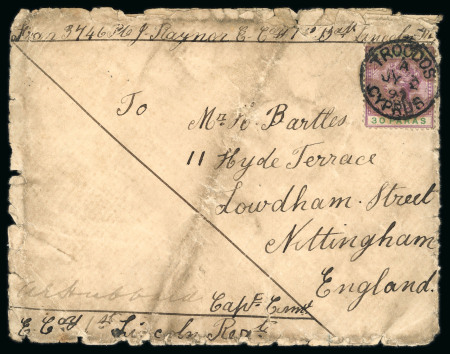 From 3746 Pte J. Raynor E. Coy 1st Batt Lincoln Rt
TROODOS
A
CYPRUS
30 PARAS
To
Mr Bartles
11 Hyde Terrace
Lowdham Street
Nottingham
England.
Capt Comt
E. Coy 1st Lincoln Regt